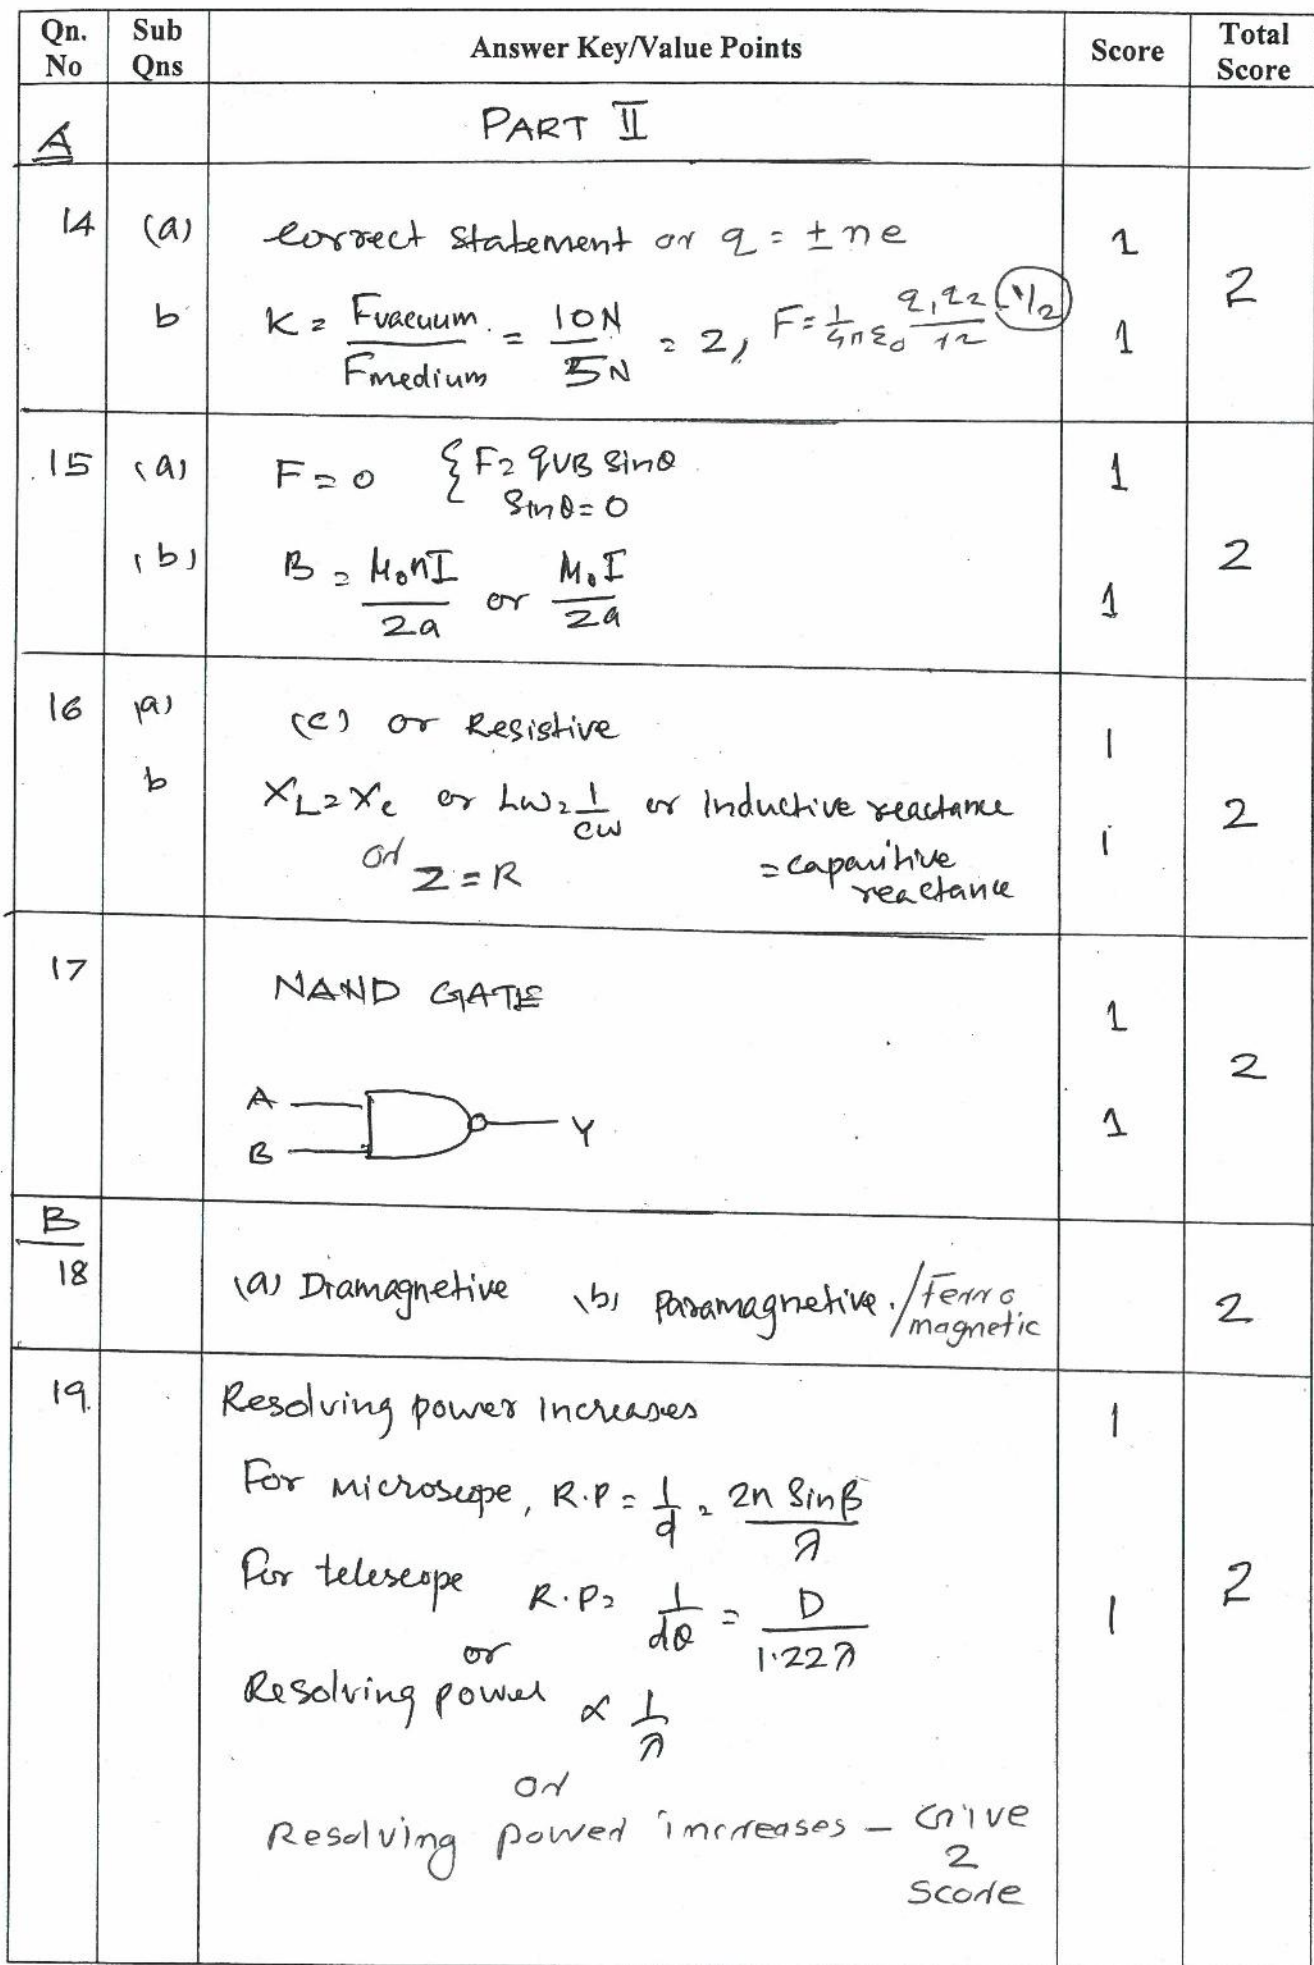 Qn. No | Sub Qns | Answer Key/Value Points | Score | Total Score
A
PART II
14 (a) Correct statement or q = ± ne 1
b K = Fvacuum / Fmedium = 10N / 5N = 2, F = 1/4πε0 q1q2/r2 - 1/2 1
2
15 (a) F = 0 { F = qVB Sinθ 1
Sinθ = 0
(b) B = μ0nI / 2a or μ0I / 2a 1
2
16 (a) (c) or Resistive 1
b XL = Xc or Lω = 1/cω or Inductive reactance 1
= capacitive reactance
or Z = R
2
17 NAND GATE 1
A
B
Y 1
2
B
18 (a) Diamagnetive (b) Paramagnetive. / Ferro magnetic 2
19. Resolving power increases 1
For microscope, R.P = 1/d = 2n Sinβ / λ
For telescope R.P = 1/dθ = D / 1.22λ 1
or
Resolving power ∝ 1/λ
or
Resolving power increases – Give 2 Score
2